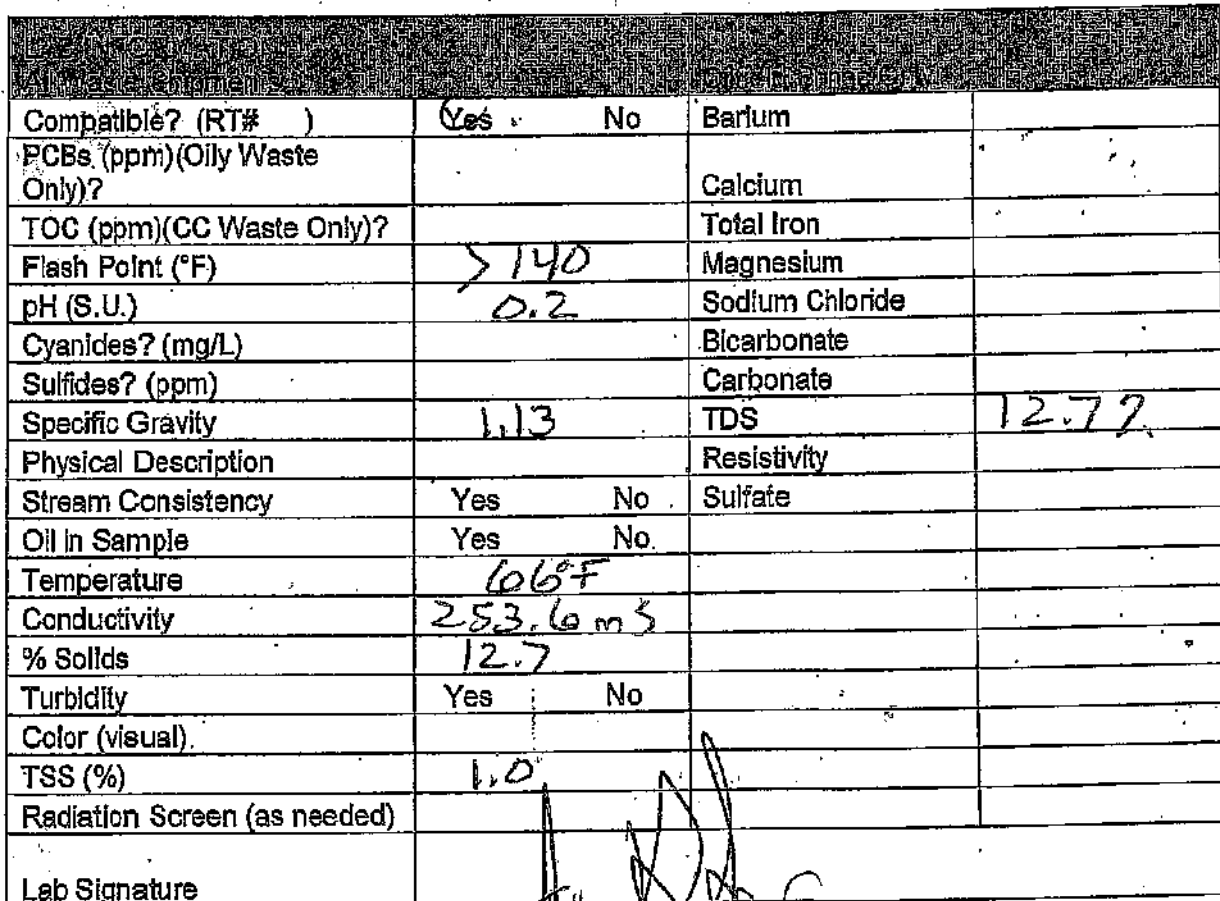 Compatible? (RT# ) Yes No Barium
PCBs (ppm)(Oily Waste
Only)? Calcium
TOC (ppm)(CC Waste Only)? Total Iron
Flash Point (°F) >140 Magnesium
pH (S.U.) 0.2 Sodium Chloride
Cyanides? (mg/L) Bicarbonate
Sulfides? (ppm) Carbonate
Specific Gravity 1.13 TDS 12.7
Physical Description Resistivity
Stream Consistency Yes No Sulfate
Oil in Sample Yes No
Temperature 66°F
Conductivity 253.6 mS
% Solids 12.7
Turbidity Yes No
Color (visual)
TSS (%) 1.0
Radiation Screen (as needed)
Lab Signature